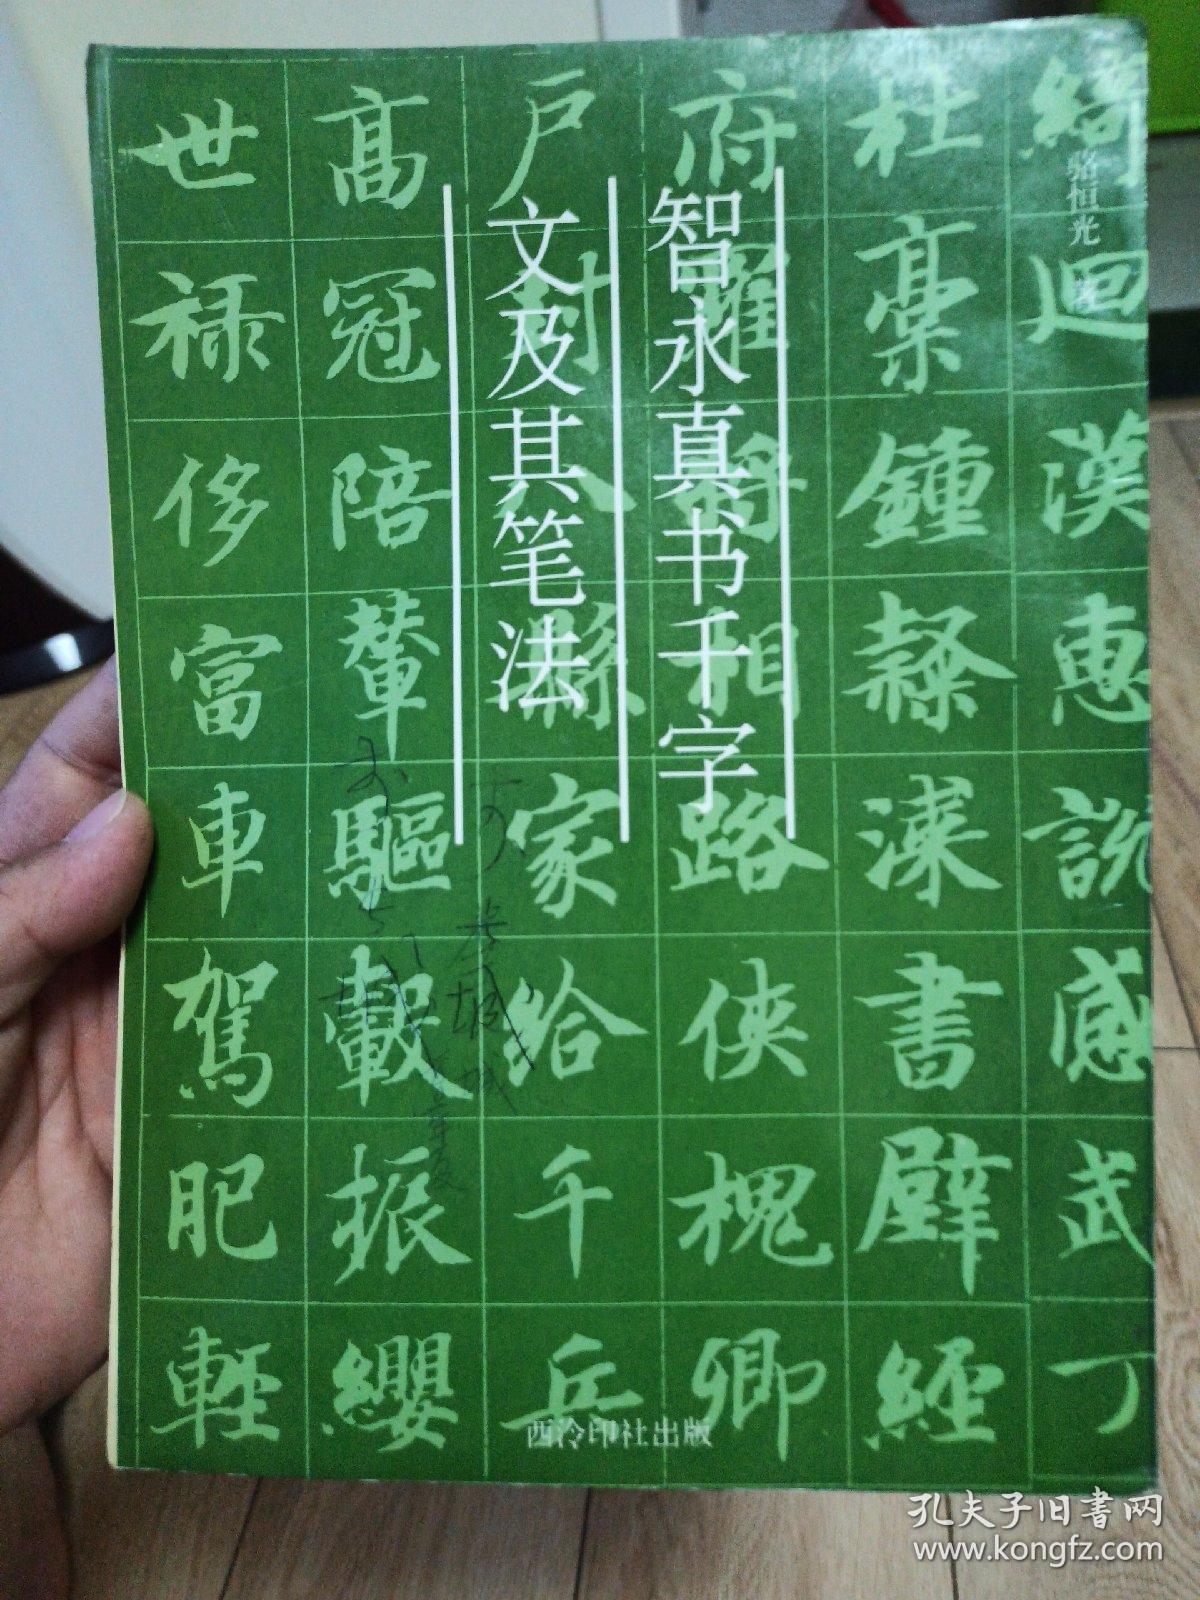 智永真书千字
文及其笔法
骆恒光
綺迴漢惠說感武丁
杜稾鍾隸漆書壁經
府羅將相路俠槐卿
户封八縣家給千兵
高冠陪輦驅轂振纓
世禄侈富車駕肥輕
西泠印社出版
孔夫子旧书网
www.kongfz.com